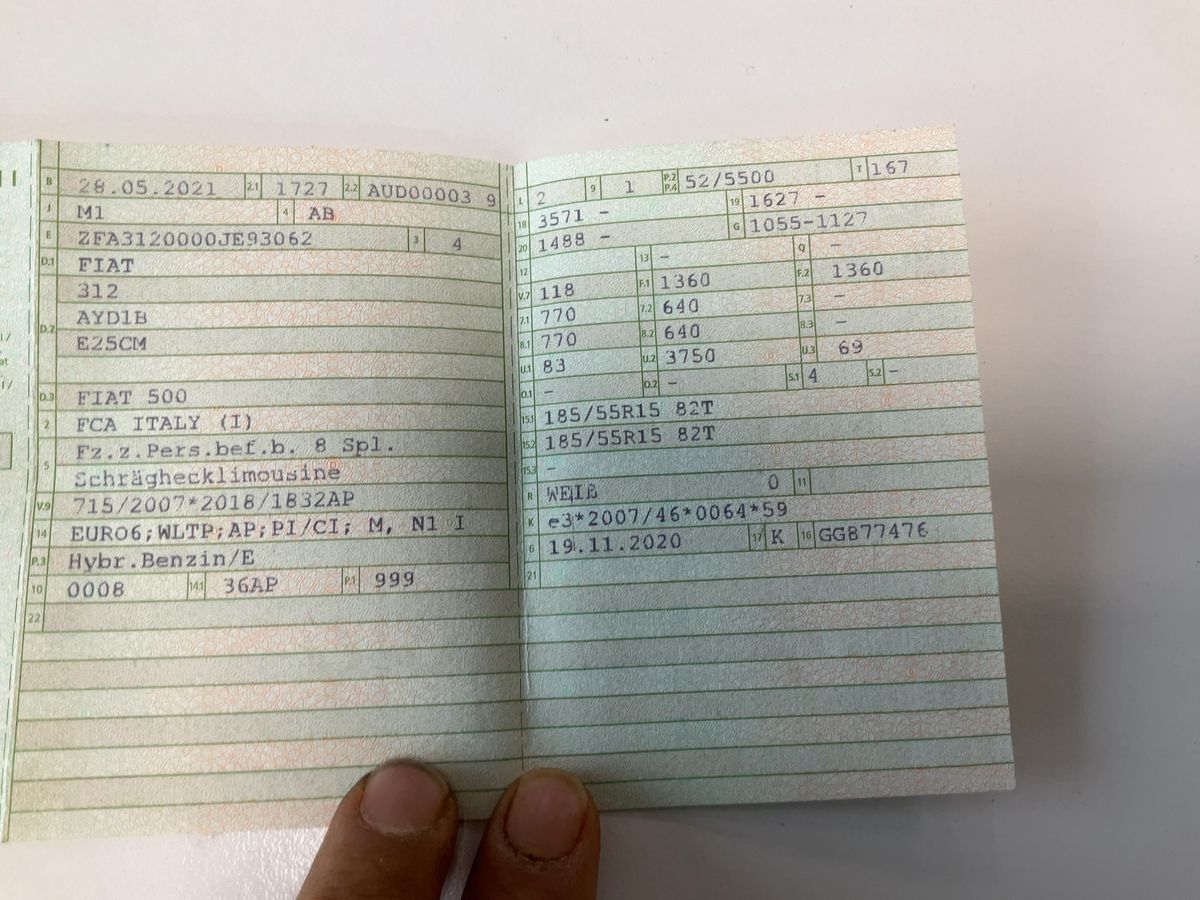 B 28.05.2021 2.1 1727 2.2 AUD00003 9
J M1 4 AB
E ZFA3120000JE93062 3 4
D.1 FIAT
312
D.2 AYD1B
E25CM
D.3 FIAT 500
2 FCA ITALY (I)
5 Fz.z.Pers.bef.b. 8 Spl.
Schräghecklimousine
V.9 715/2007*2018/1832AP
14 EURO6;WLTP;AP;PI/CI; M, N1 I
P.3 Hybr.Benzin/E
10 0008 14.1 36AP P.1 999
22
L 2 9 1 P.2 P.4 52/5500 T 167
18 3571 - 19 1627 -
20 1488 - G 1055-1127
12 13 - Q -
V.7 118 F.1 1360 F.2 1360
7.1 770 7.2 640 7.3 -
8.1 770 8.2 640 8.3 -
U.1 83 U.2 3750 U.3 69
O.1 - O.2 - S.1 4 S.2 -
15.1 185/55R15 82T
15.2 185/55R15 82T
15.3 -
R WEIß 0 11
K e3*2007/46*0064*59
6 19.11.2020 17 K 16 GG877476
21